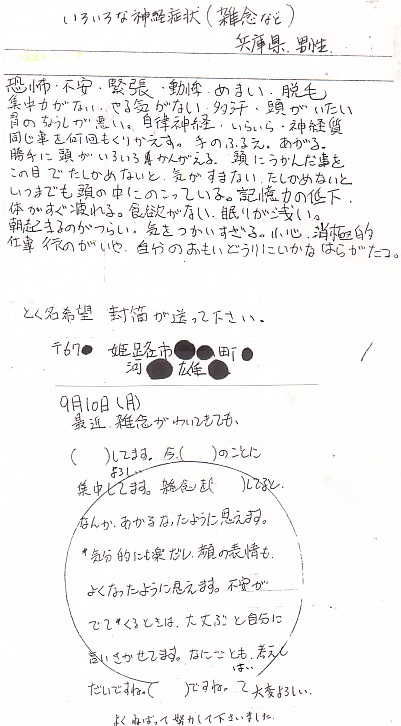 いろいろな神経症状(雑念など)
兵庫県.男性.
恐怖・不安・緊張・動悸・めまい・脱毛
集中力がない・やる気がない・多汗・頭がいたい
胃のちょうしが悪い。自律神経・いらいら・神経質
同じ事を何回もくりかえす。手のふるえ。あがる。
勝手に頭がいろいろ事かんがえる。頭にうかんだ事を
この目でたしかめないと気がすまない.たしかめないと
いつまでも頭の中にのこっている。記憶力の低下.
体がすぐ疲れる。食欲がない.眠りが浅い。
朝起きるのがつらい.気をつかいすぎる。小心.消極的
仕事行くのがいや.自分のおもいどうりにいかなはらがたつ。
とく名希望 封筒が送って下さい.
〒67● 姫路市●●町●
河●雄●
9月10日(月)
最近.雑念がわいてもても、
( )してます。今.( )のことに
よろしい
集中してます。雑念を( )してると.
なんか.あかるなったように思えます。
*気分的にも楽だし.顔の表情も.
よくなったように思えます。不安が
でてくるときは、大丈ぶと自分に
言いきかせてます。なにごとも.考えし
はい
だいですね。( )ですね。て 大変よろしい.
よくねばって努力して下さいました.